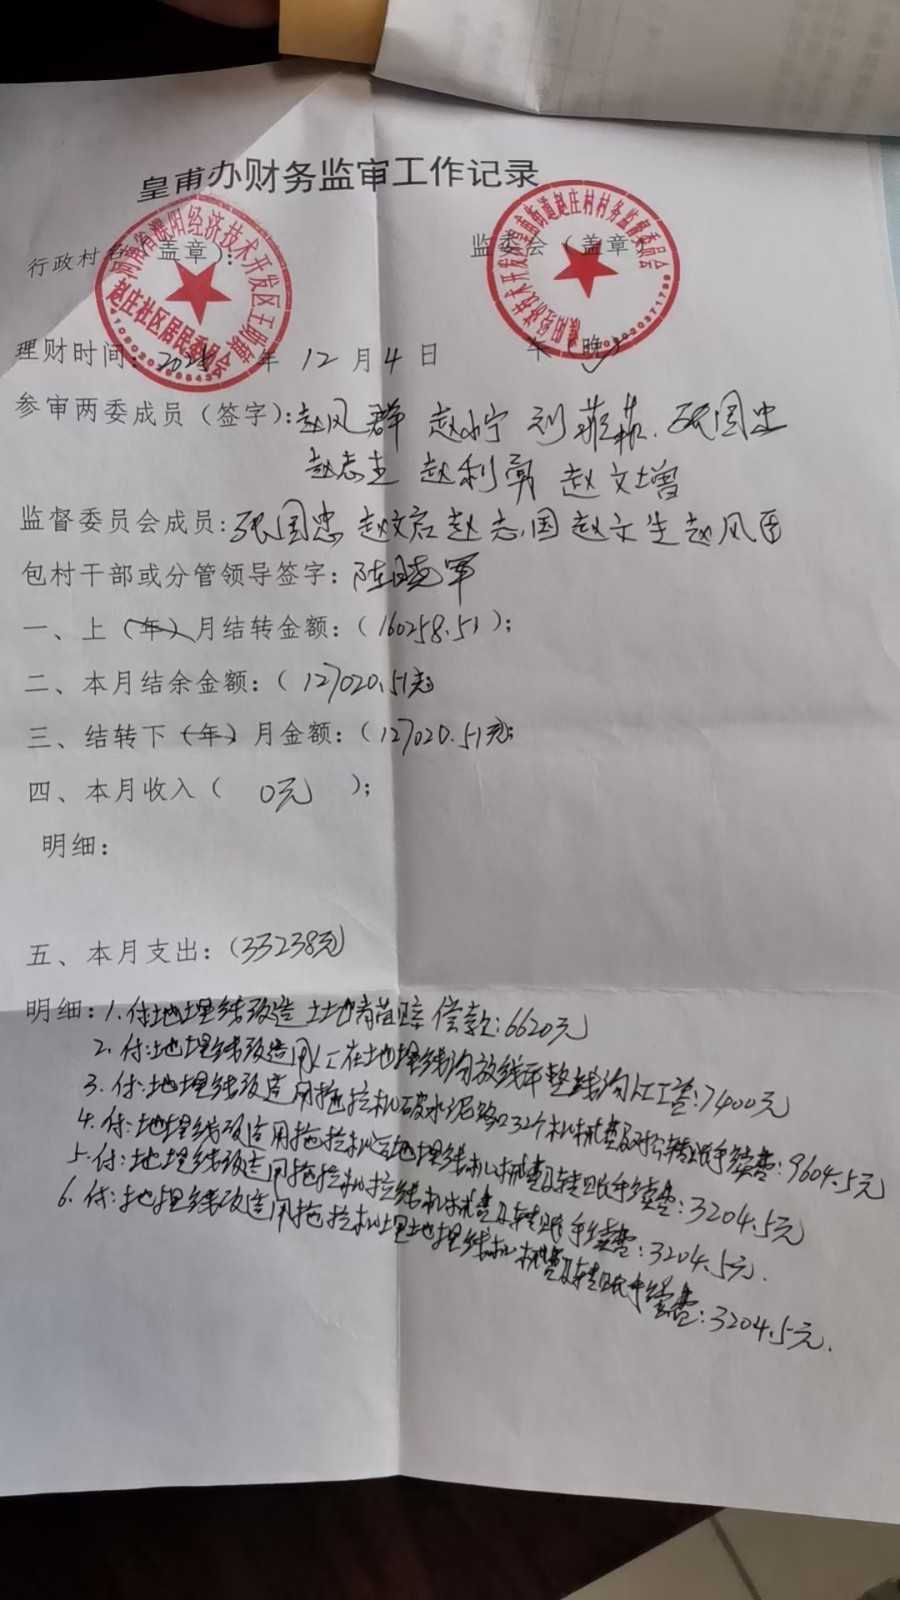 皇甫办财务监审工作记录
行政村名（盖章）：
监委会（盖章）
河南省濮阳经济技术开发区王助镇
赵庄社区居民委员会
濮阳经济技术开发区皇甫街道赵庄村村务监督委员会
理财时间：2024年12月4日 午（晚）
参审两委成员（签字）：赵风群 赵小宁 刘菲菲 张国忠
赵志圭 赵利勇 赵文增
监督委员会成员：张国忠 赵文启 赵志国 赵文生 赵风臣
包村干部或分管领导签字：陆晓军
一、上（年）月结转金额：（160258.51）；
二、本月结余金额：（127020.51元
三、结转下（年）月金额：（127020.51元；
四、本月收入（ 0元 ）；
明细：
五、本月支出：（33238元）
明细：1.付地埋线改造土地青苗赔偿款：6620元
2.付：地埋线改造用人工在地埋线沟放线平整线沟人工差：7400元
3.付：地埋线改造用拖拉机破水泥路口32个机械费及对公转账手续费：9604.5元
4.付：地埋线改造用拖拉机运地埋线机械费及转账手续费：3204.5元
5.付：地埋线改造用拖拉机拉线机械费及转账手续费：3204.5元.
6.付：地埋线改造用拖拉机埋地埋线机械费及转账手续费：3204.5元.